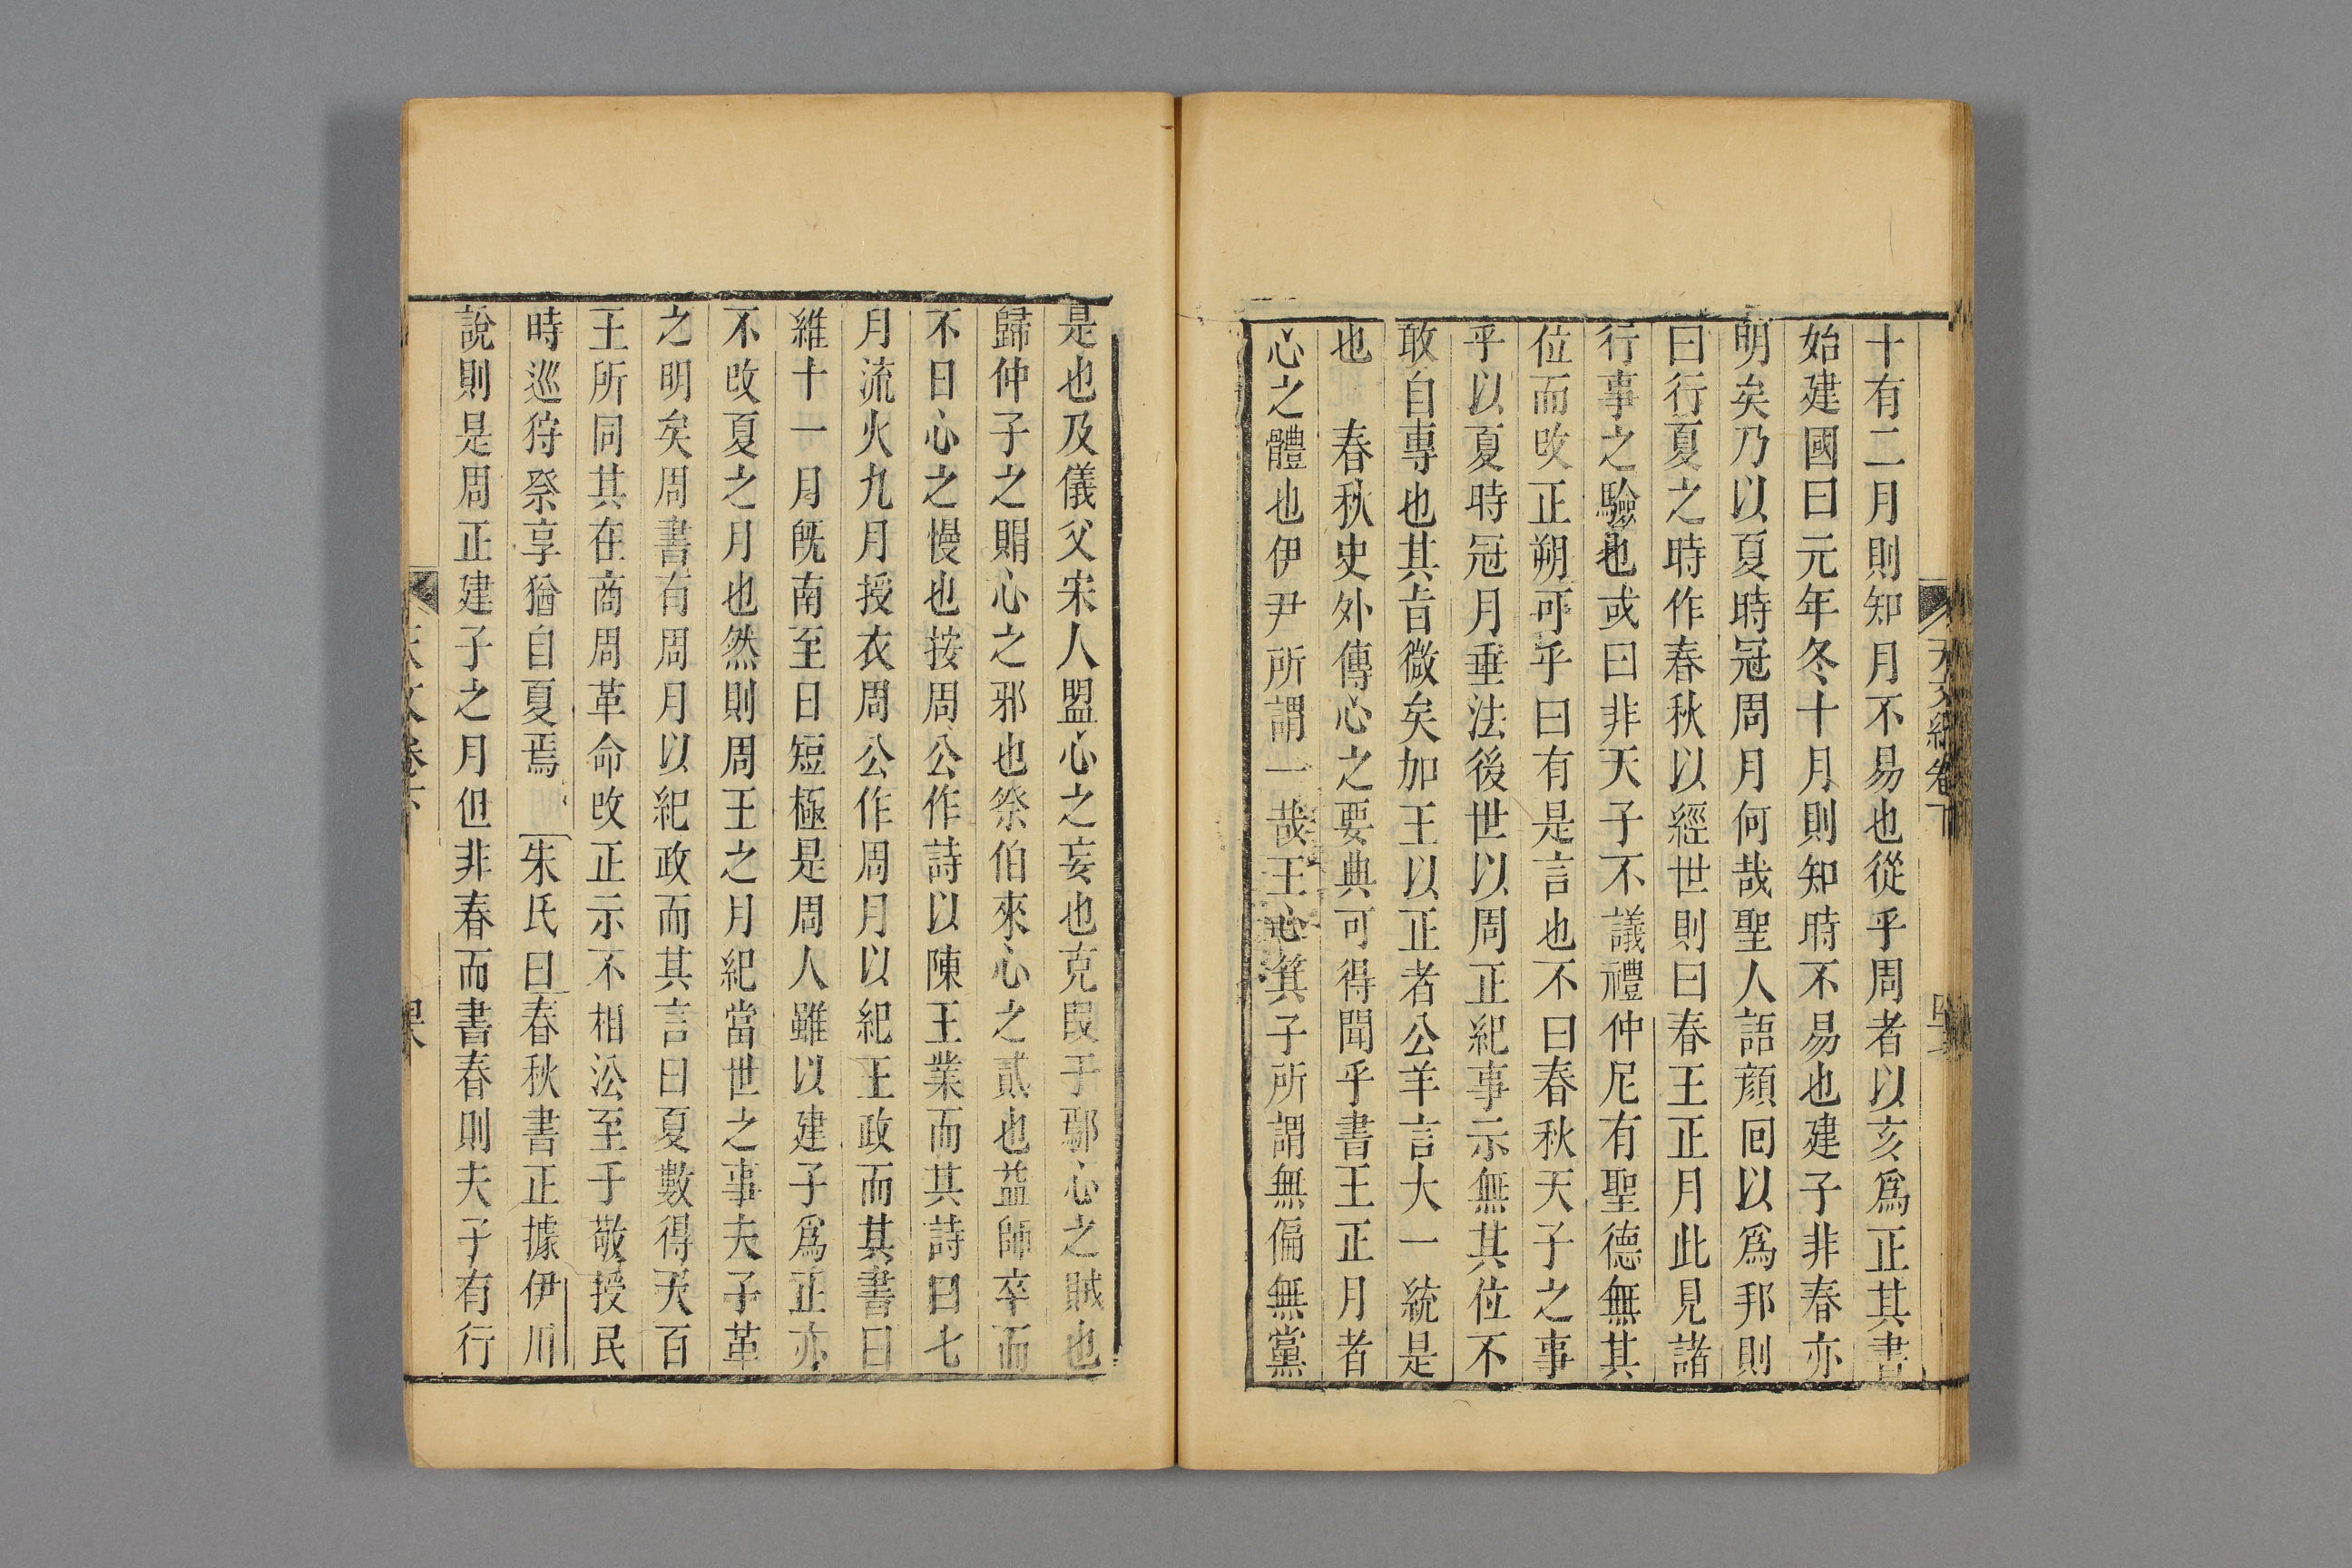 十有二月則知月不易也從乎周者以亥爲正其書
始建國曰元年冬十月則知時不易也建子非春亦
明矣乃以夏時冠周月何哉聖人語顏回以爲邦則
曰行夏之時作春秋以經世則曰春王正月此見諸
行事之驗也或曰非天子不議禮仲尼有聖德無其
位而改正朔可乎曰有是言也不曰春秋天子之事
乎以夏時冠月垂法後世以周正紀事示無其位不
敢自專也其旨微矣加王以正者公羊言大一統是
也　春秋史外傳心之要典可得聞乎書王正月者
心之體也伊尹所謂一哉王心箕子所謂無偏無黨
是也及儀父宋人盟心之妄也克段于鄢心之賊也
歸仲子之賵心之邪也祭伯來心之貳也益師卒而
不日心之慢也按周公作詩以陳王業而其詩曰七
月流火九月授衣周公作周月以紀王政而其書曰
維十一月旣南至日短極是周人雖以建子爲正亦
不改夏之月也然則周王之月紀當世之事夫子革
之明矣周書有周月以紀政而其言曰夏數得天百
王所同其在商周革命改正示不相沿至于敬授民
時巡狩祭享猶自夏焉　朱氏曰春秋書正據伊川
說則是周正建子之月但非春而書春則夫子有行
天文卷下